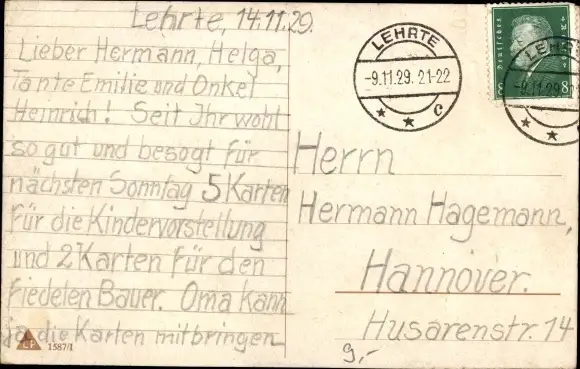 Lehrte, 14.11.29.
Lieber Hermann, Helga,
Tante Emilie und Onkel
Heinrich! Seit Ihr wohl
so gut und besogt für
nächsten Sonntag 5 Karten
für die Kindervorstellung
und 2 Karten für den
fiedelen Bauer. Oma kann
ja die Karten mitbringen
LF 1587/1
LEHRTE
-9.11.29. 21-22
* * c
Deutsches Reich
8 8
LEHRTE
-9.11.29
* *
Herrn
Hermann Hagemann,
Hannover.
Husarenstr. 14
9,-